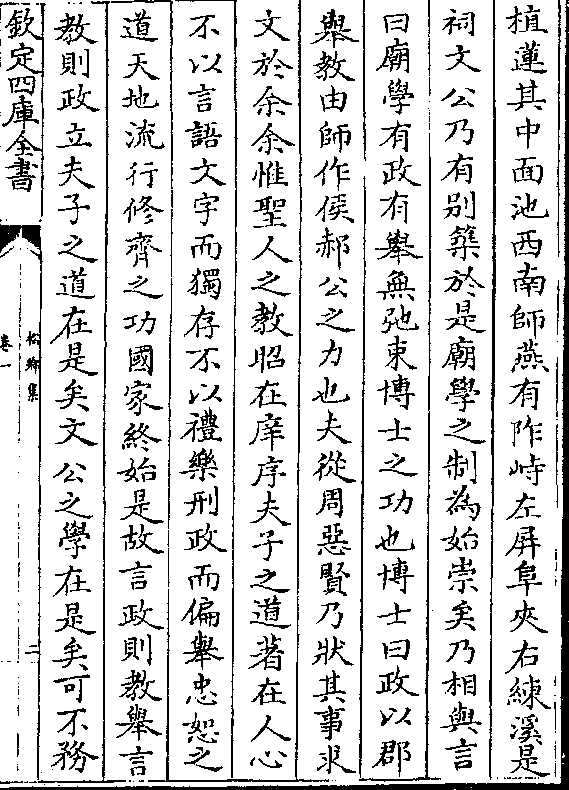 植蓮其中面池西南師燕有阼峙左屏阜夾右練溪是
祠文公乃有别築於是廟學之制為始崇矣乃相與言
曰廟學有政有舉無弛束博士之功也博士曰政以郡
舉教由師作侯郝公之力也夫從周惡賢乃狀其事求
文於余余惟聖人之教昭在庠序夫子之道著在人心
不以言語文字而獨存不以禮樂刑政而偏舉忠恕之
道天地流行修齊之功國家終始是故言政則教舉言
教則政立夫子之道在是矣文公之學在是矣可不務
欽定四庫全書
松鄉集
卷一
二